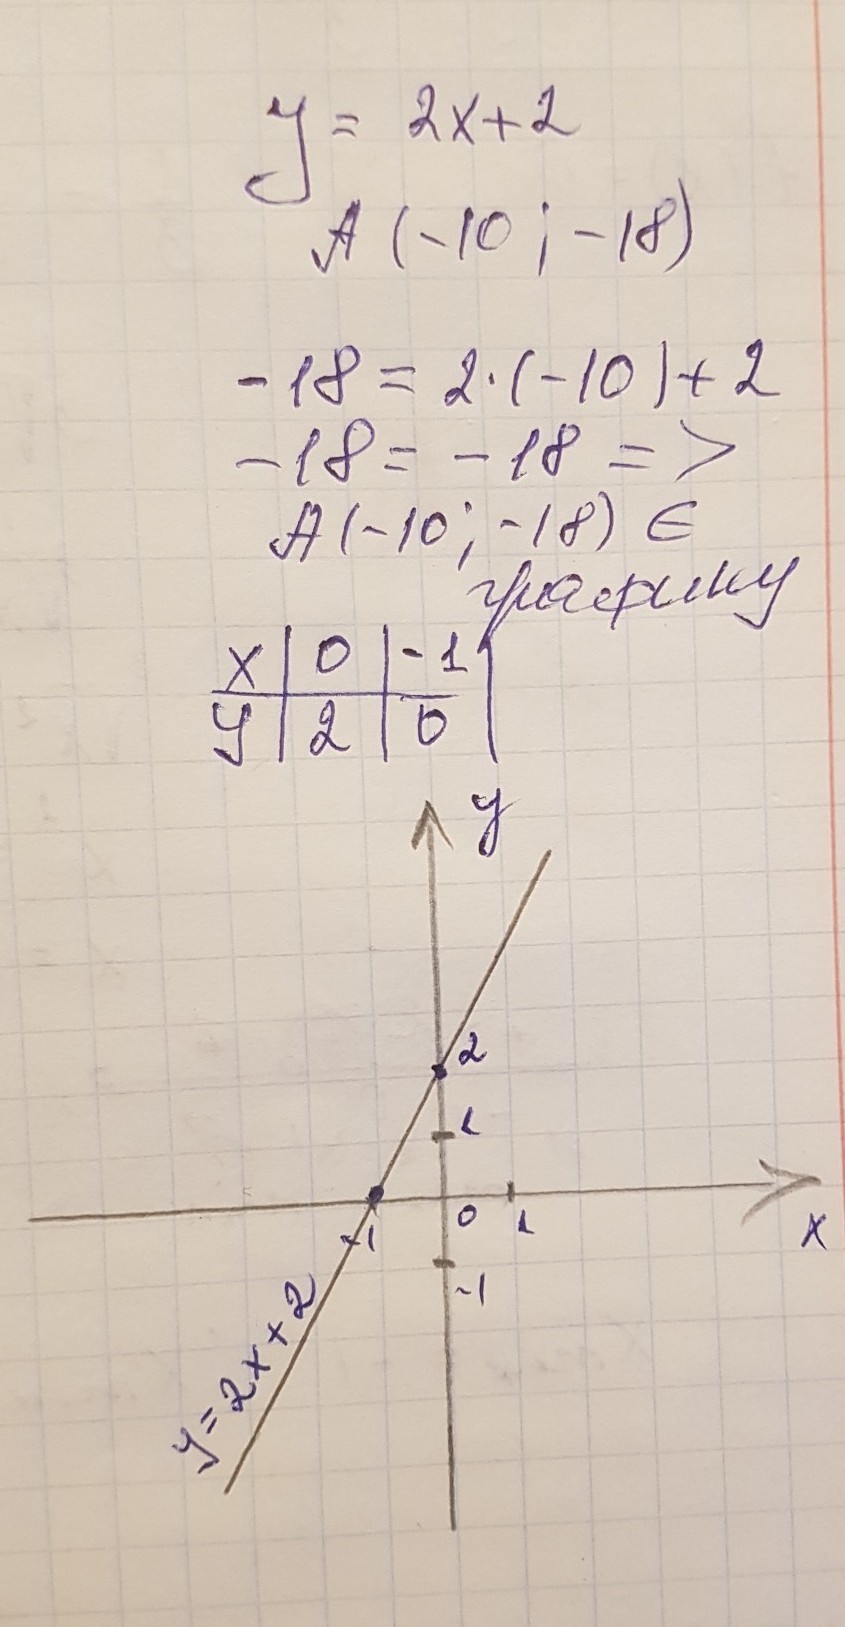 y = 2x+2
A (-10 ; -18)
-18 = 2·(-10)+2
-18 = -18 =>
A(-10; -18) ∈
графику
x | 0 | -1 |
y | 2 | 0 |
y
2
1
-1 0 1
x
-1
y=2x+2